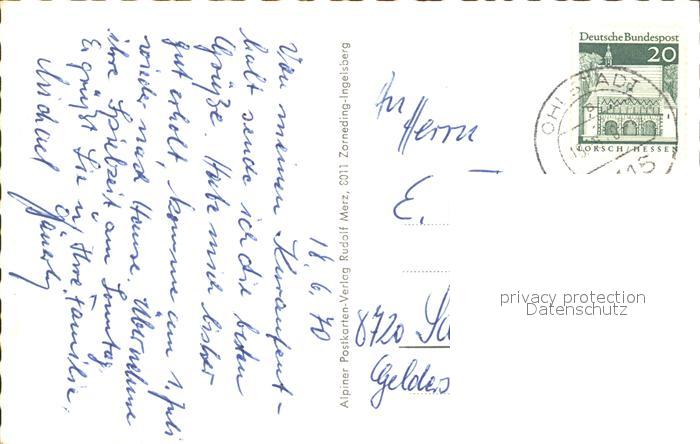 18.6.70
Von meinem Kuraufent-
halt sende ich die besten
Grüße. Habe mich bisher
gut erholt, komme am 1. Juli
wieder nach Hause. Übernehme
ihre Spielzeit am Sonntag.
Es grüßt Sie u. Ihre Familie,
Michael
Alpiner Postkarten-Verlag Rudolf Merz, 8011 Zorneding-Ingelsberg
Deutsche Bundespost
20
LORSCH/HESSEN
OHLSTADT
An
Herrn
E.
8720
Gelders
privacy protection
Datenschutz